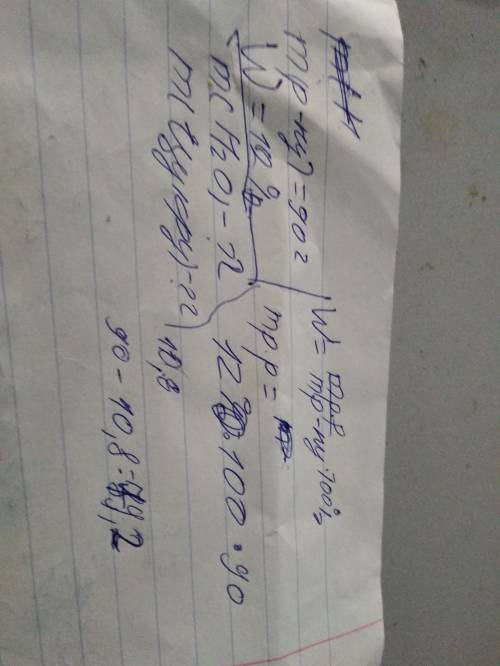 mр-ну = 90г
W = 10%
m(H₂O) - ?
m(цукру) - ?г
W = mр.р / mр-ну · 100%
mр.р =
12 : 100 · 90
10,8
90 - 10,8 =